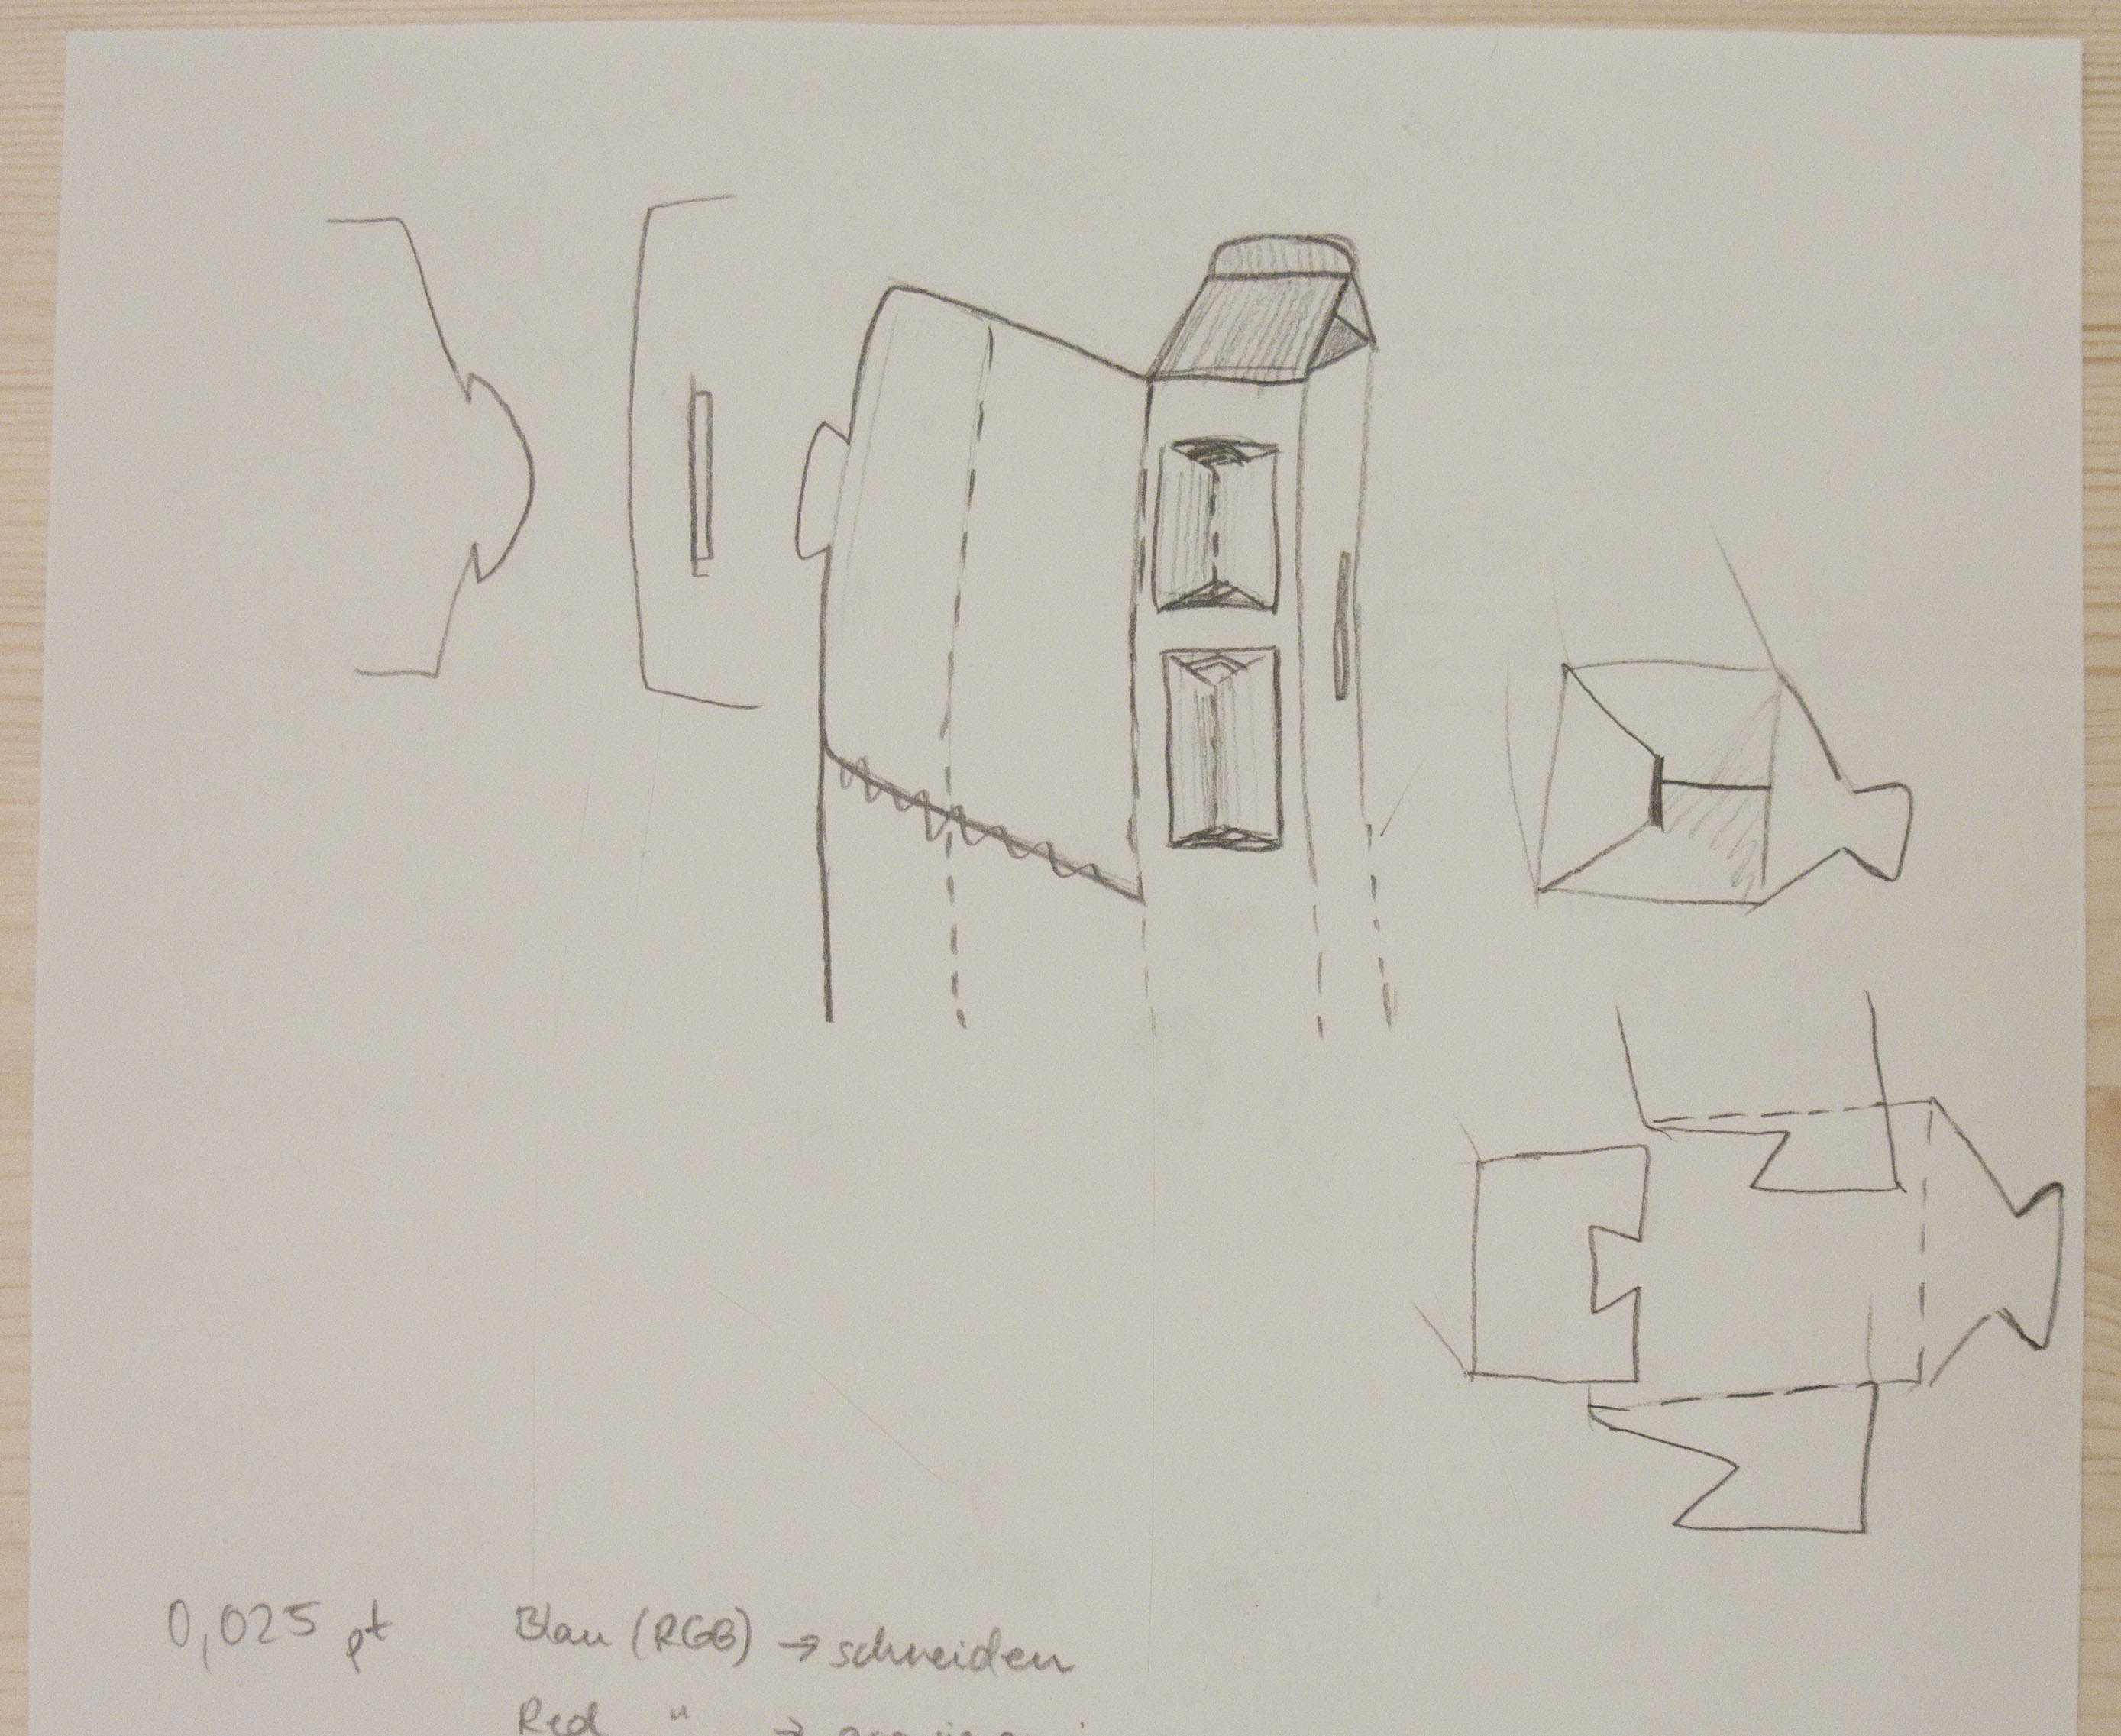 0,025 pt Blau (RGB) → schneiden
Red " →